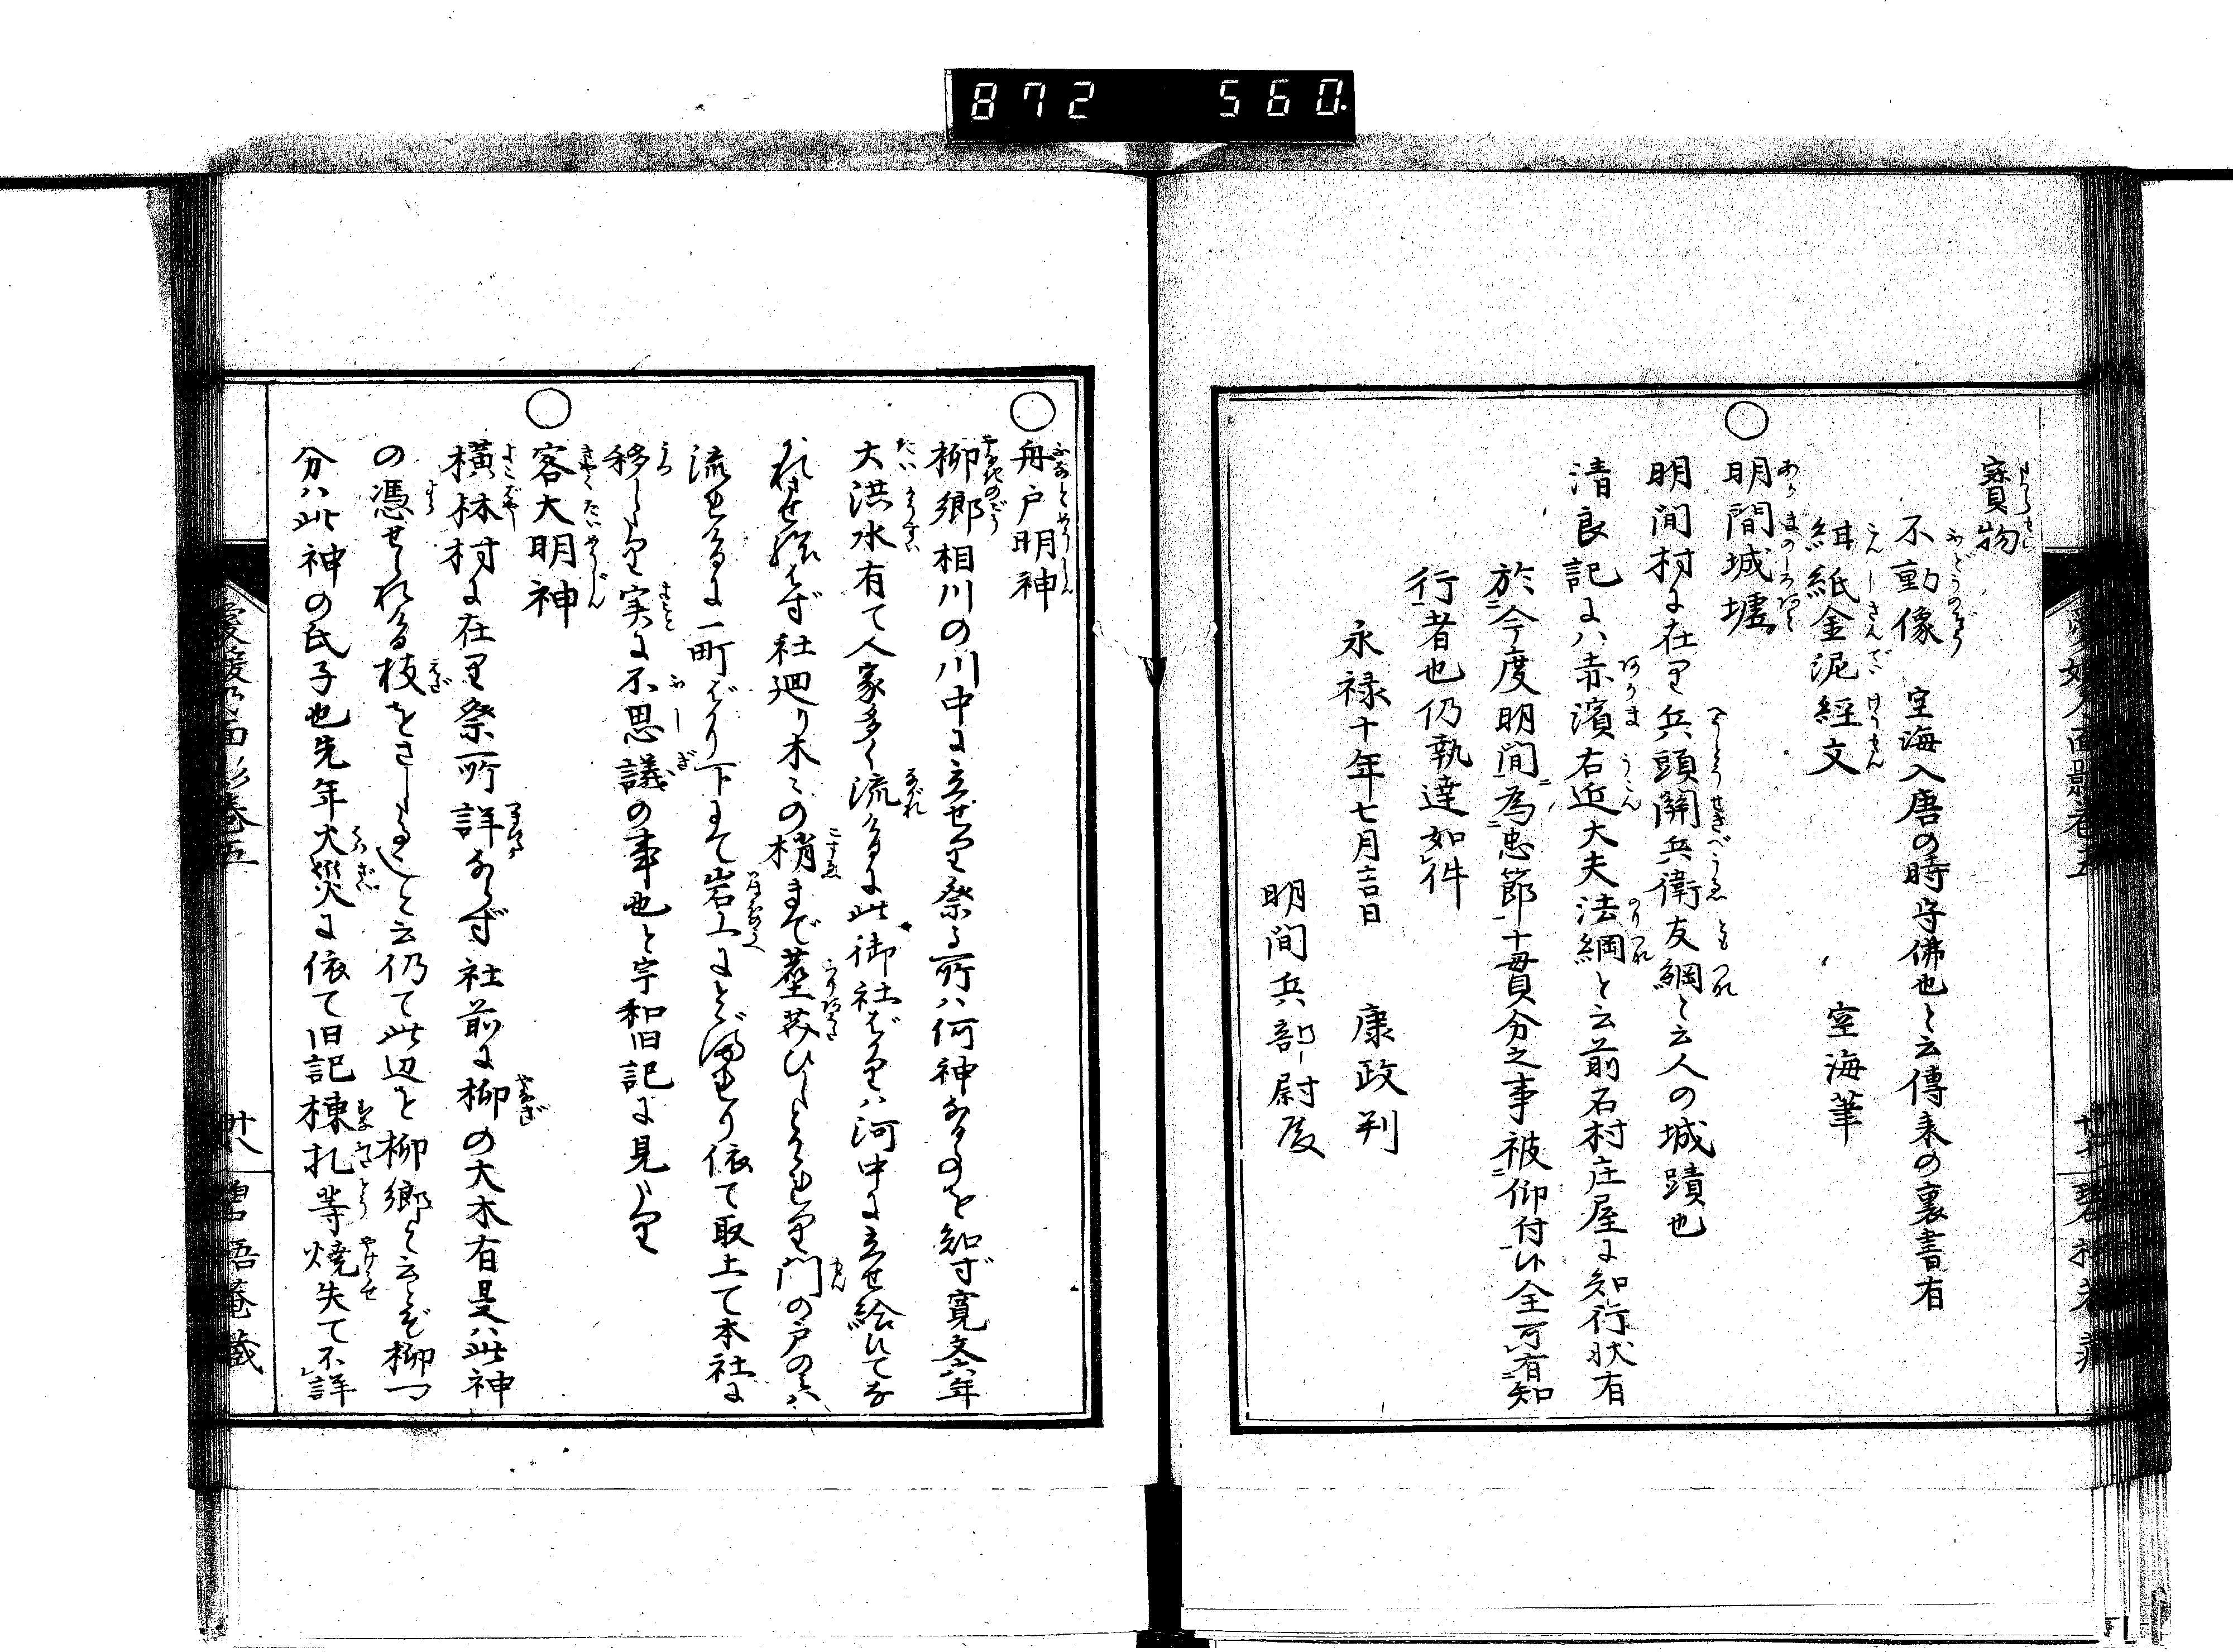 872 560.
寳物
不動像 空海入唐の時守佛也と云傳来の裏書有
紺紙金泥経文 空海筆
○明間城墟
明間村に在り兵頭関兵衛友綱と云人の城蹟也
清良記にハ赤濱右近大夫法綱と云前石村庄屋に知行状有
於今度明間為忠節十貫分之事被仰付候全可有知
行者也仍執達如件
永禄十年七月吉日 康政判
明間兵部尉殿
○舟戸明神
柳郷相川の川中に立せり祭る所ハ何神なるのを知ず寛文六年
大洪水有て人家多く流れるに此御社ばかりハ河中に立せ給ひてな
がれさせ給はず社廻り木々の梢まで塵芥ひしとかゝれり門の戸のミハ
流れるに一町ばかり下にて岩上にとゞまれり依て取上て本社に
移しけり実に不思議の事也と宇和旧記に見へけり
○客大明神
横林村に在り祭所詳ならず社前に柳の大木有是ハ此神
の憑せられる枝をさしたると云仍て此辺を柳郷と云とぞ柳一
分ハ此神の氏子也先年火災に依て旧記棟札等焼失て不詳
愛媛乃面影巻五 廿八 碧梧菴蔵